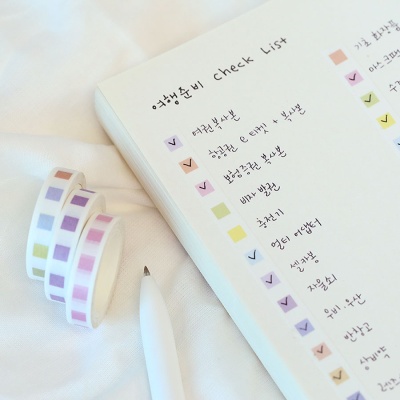 여행준비 check List
여권복사본
항공권 e티켓 + 복사본
보험증권 복사본
비자 발권
충전기
멀티 어댑터
셀카봉
자물쇠
우비, 우산
반창고
상비약
기초 화장품
마스크팩